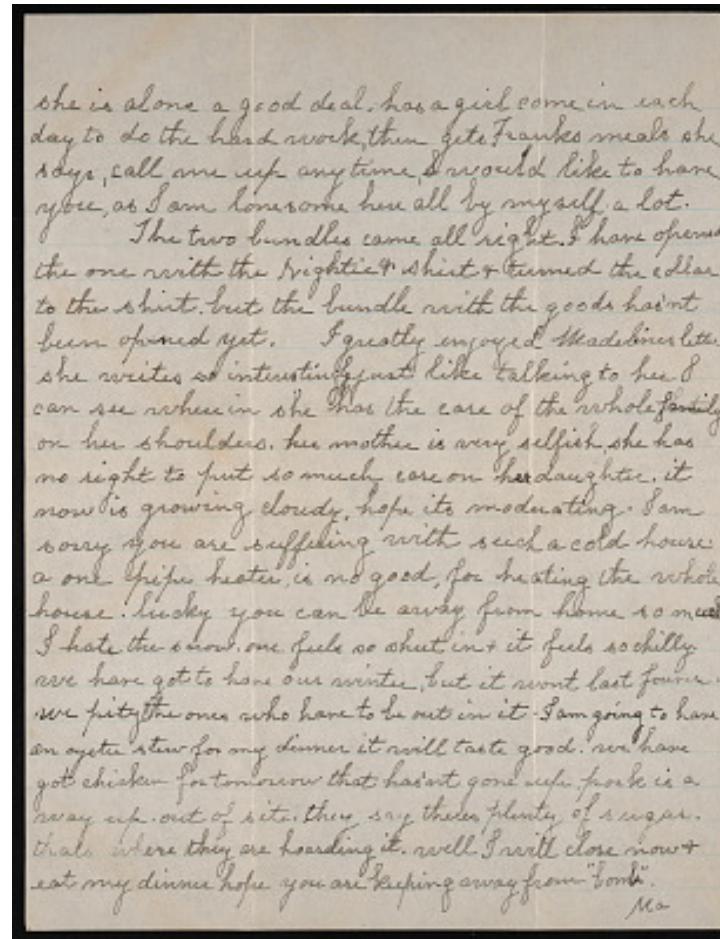 she is alone a good deal. has a girl come in each
day to do the hard work, then gets Franks meals she
says, call me up anytime, I would like to have
you, as I am lonesome here all by myself a lot.
The two bundles came all right. I have opened
the one with the Nightie & shirt & turned the collar
to the shirt. but the bundle with the goods hasn't
been opened yet. I greatly enjoyed Madelines letter
she writes so interestingly just like talking to her I
can see where in she has the care of the whole family
on her shoulders. her mother is very selfish, she has
no right to put so much care on her daughter. it
now is growing cloudy, hope its moderating. I am
sorry you are suffering with such a cold house.
a one pipe heater, is no good, for heating the whole
house. lucky you can be away from home so much
I hate the snow. one feels so shut in & it feels so chilly.
we have got to have our winter, but it wont last forever.
we pity the ones who have to be out in it. I am going to have
an oyster stew for my dinner it will taste good. we have
got chicken for tomorrow that hasn't gone up. pork is a
way up. out of site. they say theres plenty of sugar.
thats where they are hoarding it. well I will close now &
eat my dinner hope you are keeping away from "bomb".
Ma